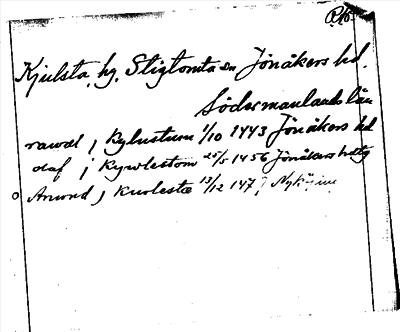 Kjulsta, hg, Stigtomta sn Jönåkers hd.
Södermanlands län
rawal j Kylustum 1/10 1443 Jönåkers hd
olaf j Kywlestom 25/5 1456 Jönåkers hdtg
o Anund j Kulesta 13/12 147 Nyköping